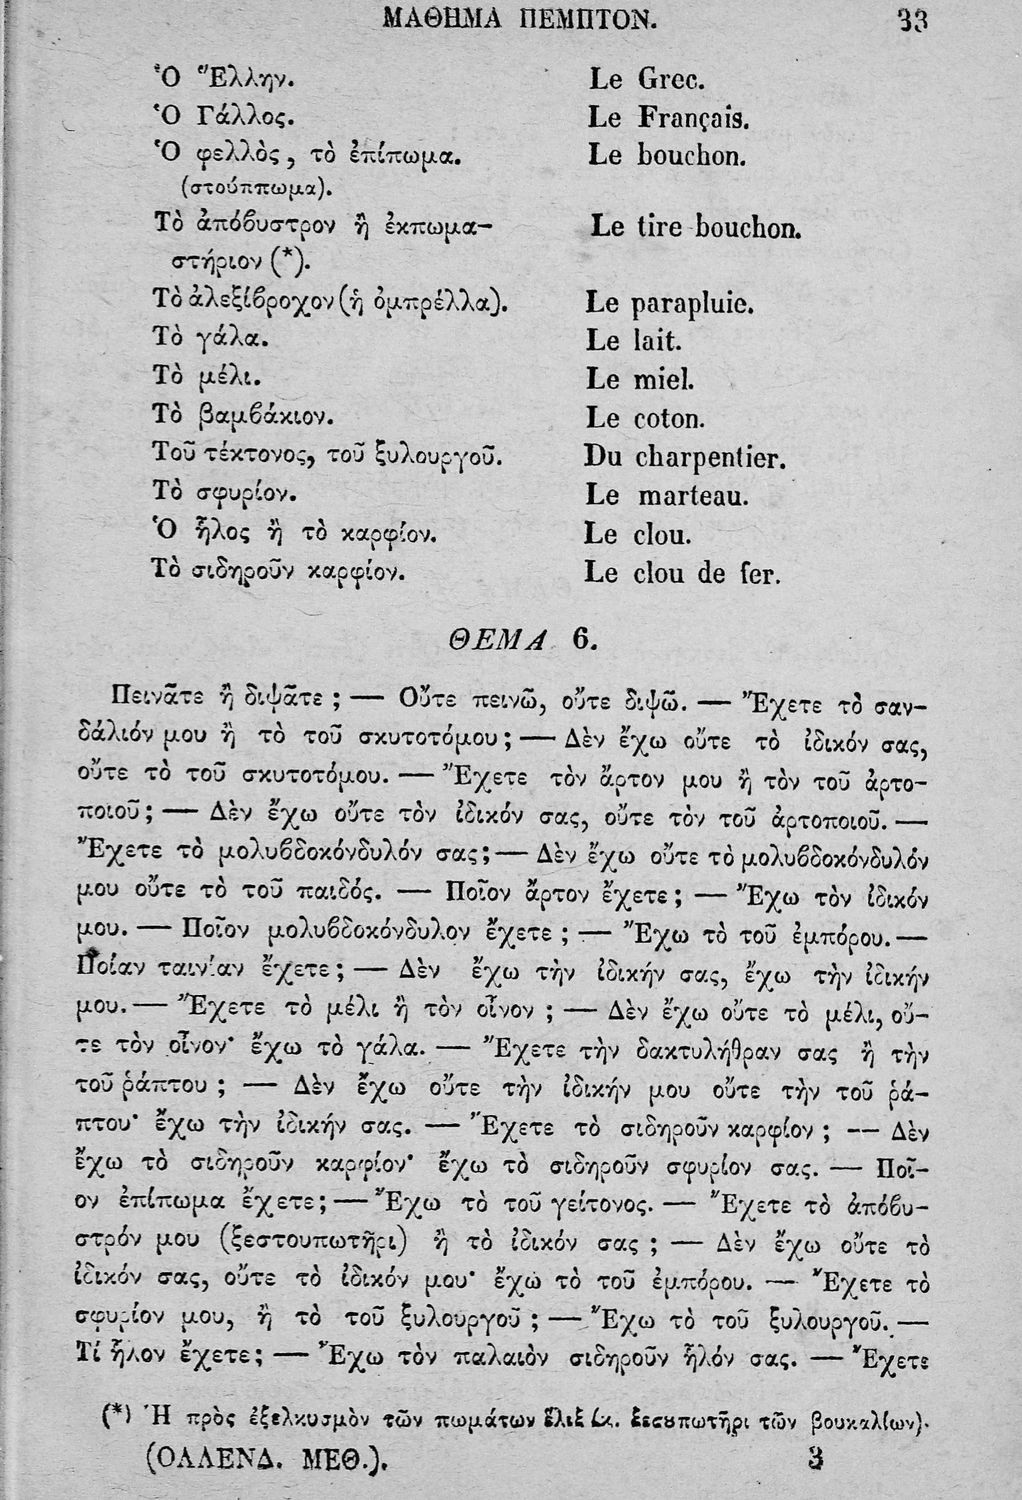 ΜΑΘΗΜΑ ΠΕΜΠΤΟΝ. 33
Ὁ Ἕλλην. Le Grec.
Ὁ Γάλλος. Le Français.
Ὁ φελλὸς, τὸ ἐπίπωμα. Le bouchon.
(στούππωμα).
Τὸ ἀπόβυστρον ἢ ἐκπωμα- Le tire bouchon.
στήριον (*).
Τὸ ἀλεξίβροχον (ἡ ὀμπρέλλα). Le parapluie.
Τὸ γάλα. Le lait.
Τὸ μέλι. Le miel.
Τὸ βαμβάκιον. Le coton.
Τοῦ τέκτονος, τοῦ ξυλουργοῦ. Du charpentier.
Τὸ σφυρίον. Le marteau.
Ὁ ἧλος ἢ τὸ καρφίον. Le clou.
Τὸ σιδηροῦν καρφίον. Le clou de fer.
ΘΕΜΑ 6.
Πεινᾶτε ἢ διψᾶτε ; — Οὔτε πεινῶ, οὔτε διψῶ. — Ἔχετε τὸ σαν-
δάλιόν μου ἢ τὸ τοῦ σκυτοτόμου ; — Δὲν ἔχω οὔτε τὸ ἰδικόν σας,
οὔτε τὸ τοῦ σκυτοτόμου. — Ἔχετε τὸν ἄρτον μου ἢ τὸν τοῦ ἀρτο-
ποιοῦ ; — Δὲν ἔχω οὔτε τὸν ἰδικόν σας, οὔτε τὸν τοῦ ἀρτοποιοῦ. —
Ἔχετε τὸ μολυβδοκόνδυλόν σας ; — Δὲν ἔχω οὔτε τὸ μολυβδοκόνδυλόν
μου οὔτε τὸ τοῦ παιδός. — Ποῖον ἄρτον ἔχετε ; — Ἔχω τὸν ἰδικόν
μου. — Ποῖον μολυβδοκόνδυλον ἔχετε ; — Ἔχω τὸ τοῦ ἐμπόρου. —
Ποίαν ταινίαν ἔχετε ; — Δὲν ἔχω τὴν ἰδικήν σας, ἔχω τὴν ἰδικήν
μου. — Ἔχετε τὸ μέλι ἢ τὸν οἶνον ; — Δὲν ἔχω οὔτε τὸ μέλι, οὔ-
τε τὸν οἶνον· ἔχω τὸ γάλα. — Ἔχετε τὴν δακτυλήθραν σας ἢ τὴν
τοῦ ῥάπτου ; — Δὲν ἔχω οὔτε τὴν ἰδικήν μου οὔτε τὴν τοῦ ῥά-
πτου· ἔχω τὴν ἰδικήν σας. — Ἔχετε τὸ σιδηροῦν καρφίον ; — Δὲν
ἔχω τὸ σιδηροῦν καρφίον· ἔχω τὸ σιδηροῦν σφυρίον σας. — Ποῖ-
ον ἐπίπωμα ἔχετε ; — Ἔχω τὸ τοῦ γείτονος. — Ἔχετε τὸ ἀπόβυ-
στρόν μου (ξεστουπωτῆρι) ἢ τὸ ἰδικόν σας ; — Δὲν ἔχω οὔτε τὸ
ἰδικόν σας, οὔτε τὸ ἰδικόν μου· ἔχω τὸ τοῦ ἐμπόρου. — Ἔχετε τὸ
σφυρίον μου, ἢ τὸ τοῦ ξυλουργοῦ ; — Ἔχω τὸ τοῦ ξυλουργοῦ. —
Τί ἧλον ἔχετε ; — Ἔχω τὸν παλαιὸν σιδηροῦν ἧλόν σας. — Ἔχετε
(*) Ἡ πρὸς ἐξέλκυσμὸν τῶν πωμάτων ἕλιξ τῶν βουκαλίων).
(ΟΛΛΕΝΔ. ΜΕΘ.). 3